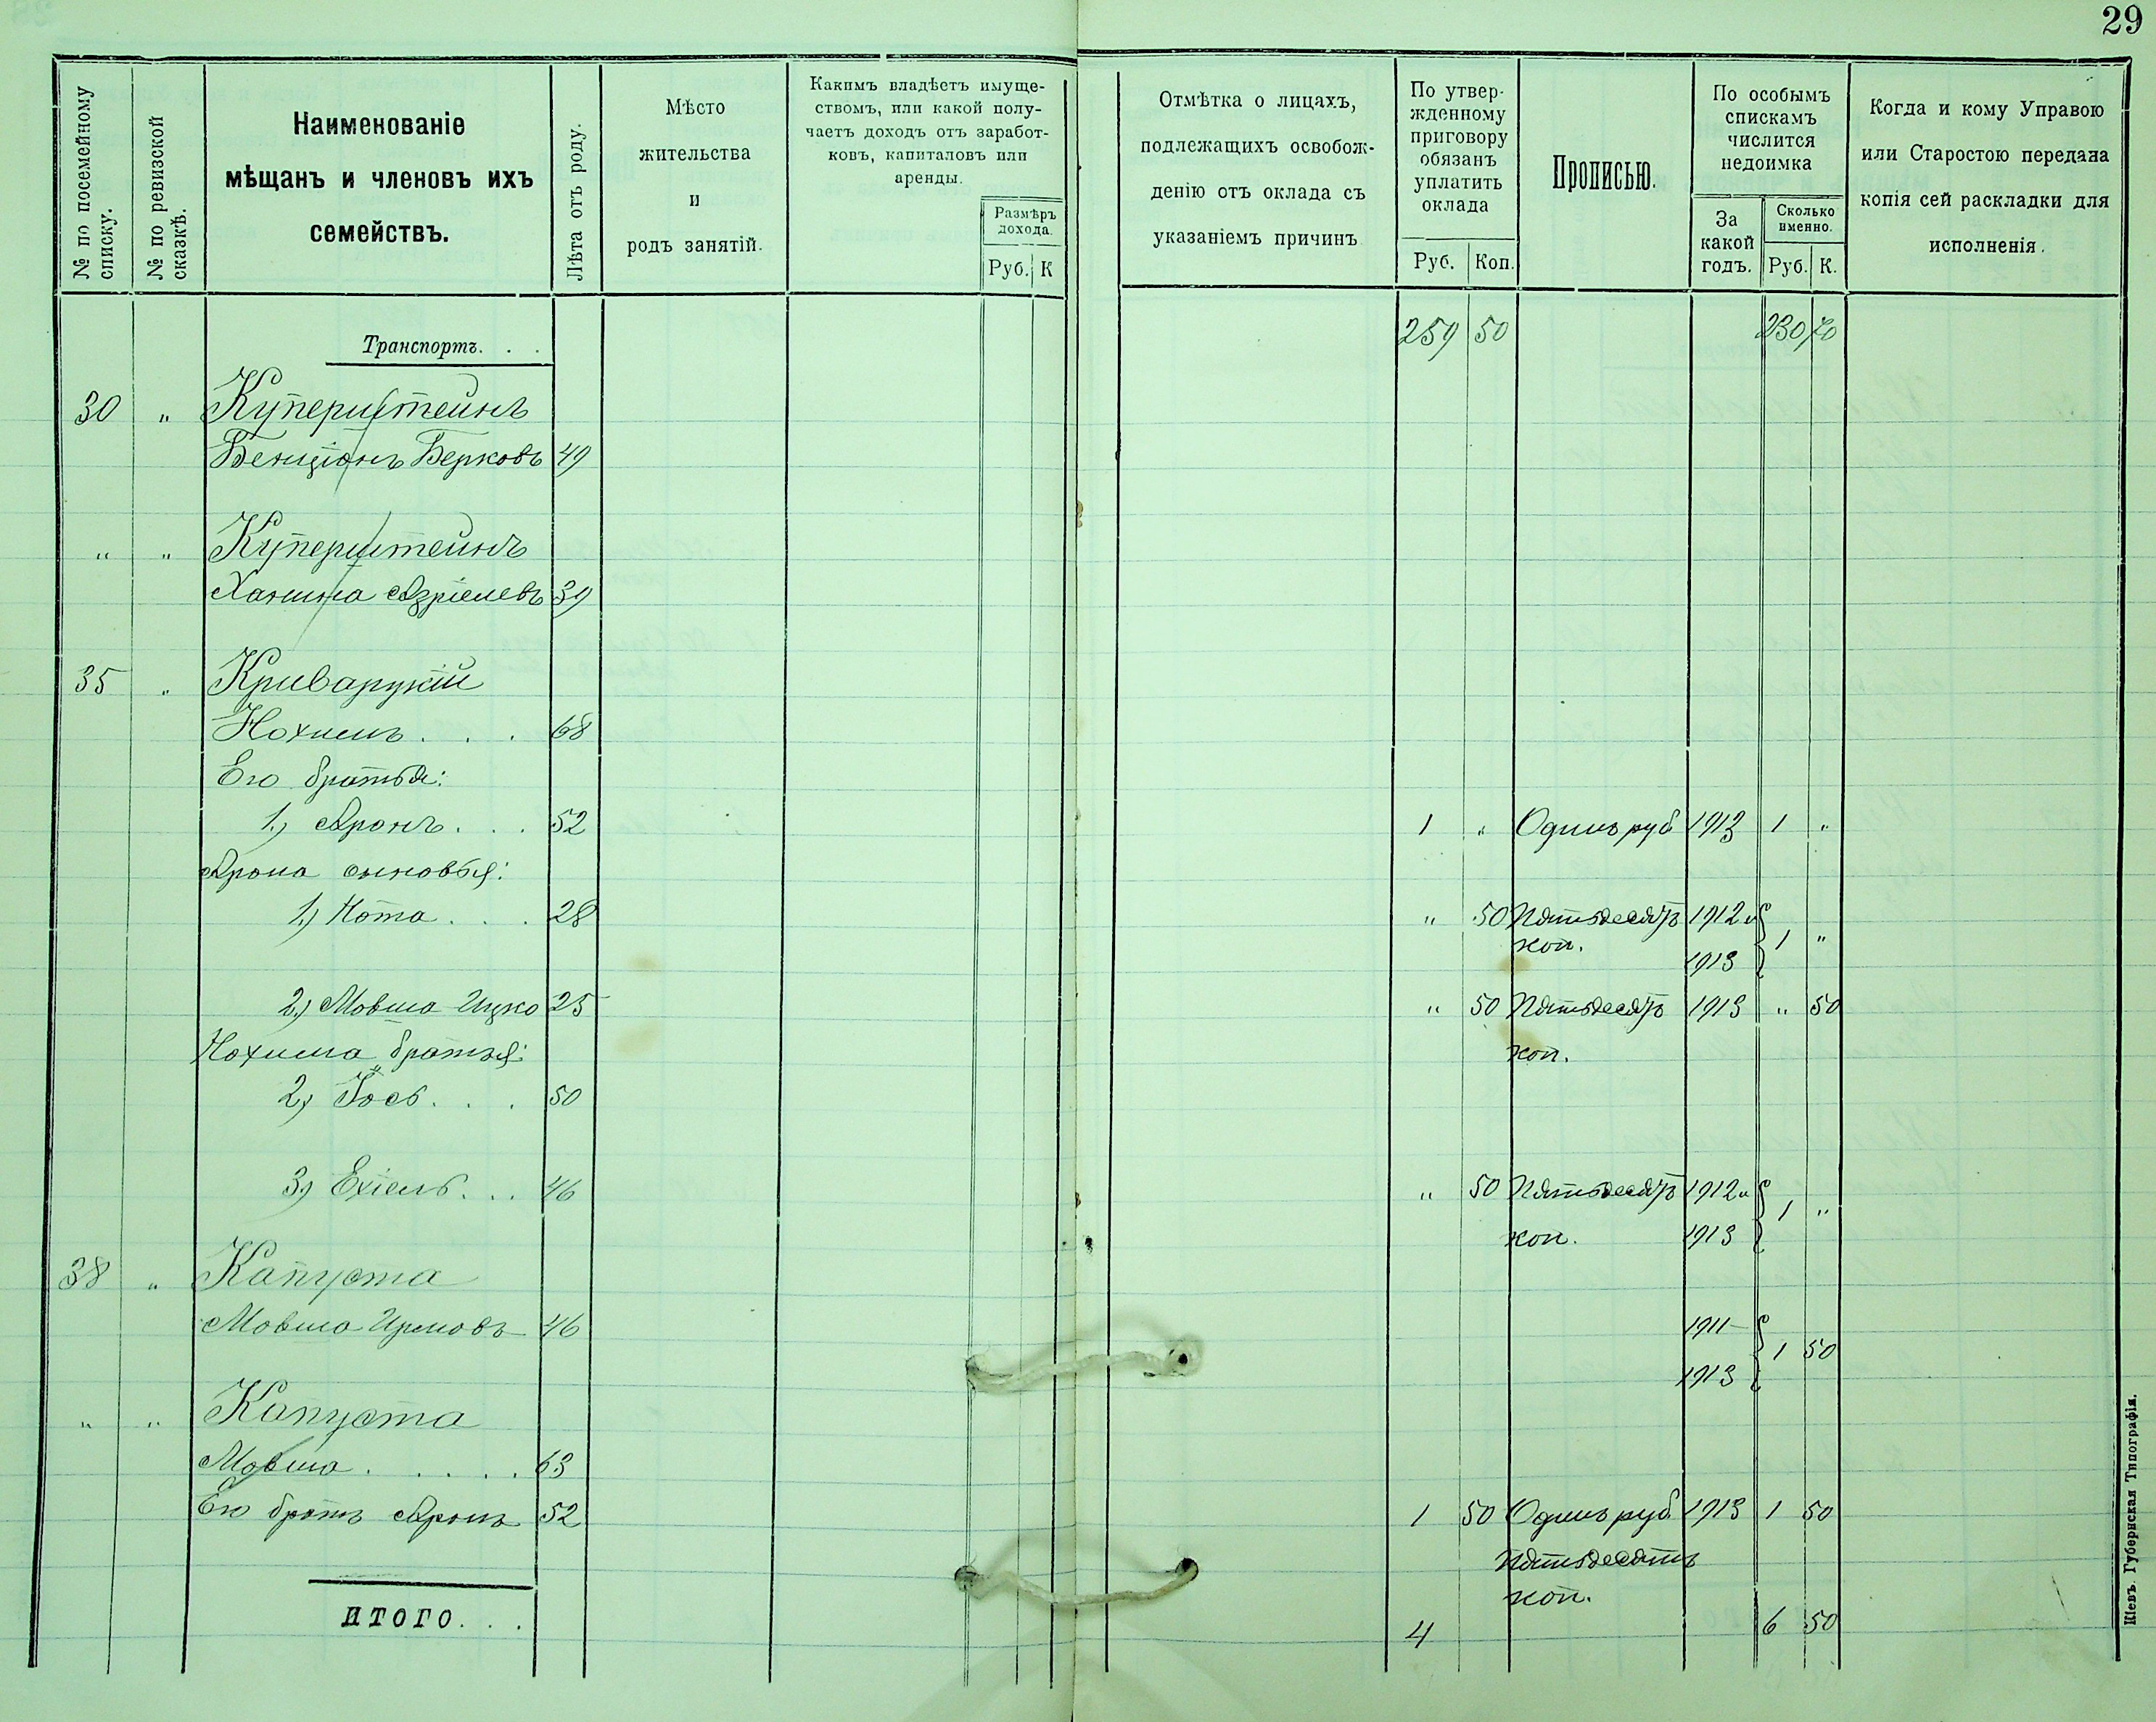 29
№ по посемейному списку.
№ по ревизской сказкѣ.
Наименованіе
мѣщанъ и членовъ ихъ
семействъ.
Лѣта отъ роду.
Мѣсто
жительства
и
родъ занятій.
Какимъ владѣетъ имуще-
ствомъ, или какой полу-
чаетъ доходъ отъ заработ-
ковъ, капиталовъ или
аренды.
Размѣръ
дохода.
Руб. К
Отмѣтка о лицахъ,
подлежащихъ освобож-
денію отъ оклада съ
указаніемъ причинъ
По утвер-
жденному
приговору
обязанъ
уплатить
оклада
Руб. Коп.
Прописью.
По особымъ
спискамъ
числится
недоимка
За
какой
годъ.
Сколько
именно.
Руб. К.
Когда и кому Управою
или Старостою передана
копія сей раскладки для
исполненія.
Транспортъ. . . 259 50 230 70
30 " Куперштейнъ
Бенціонъ Берковъ 49
" " Куперштейнъ
Ханина Азріелевъ 39
35 " Криваруцкій
Нохимъ . . . 68
Его братья:
1.) Аронъ . . . 52 1 " Одинъ руб 1913 1 "
Арона сыновья:
1.) Нота . . . 28 " 50 Пятьдесятъ 1912 и
коп. 1913 1 "
2.) Мовша Ицко 25 " 50 Пятьдесятъ 1913 " 50
Нохима братья: коп.
2) Іось . . . 50
3) Ехіель . . . 46 " 50 Пятьдесятъ 1912 и 1 "
коп. 1913
38 " Капуста
Мовша Ирмовъ 46 1911- 1 50
1913
" " Капуста
Мовша . . . . . 63
Его братъ Аронъ 52 1 50 Одинъ руб 1913 1 50
Пятьдесятъ
коп.
ИТОГО. . . 4 6 50
Кіевъ. Губернская Типографія.